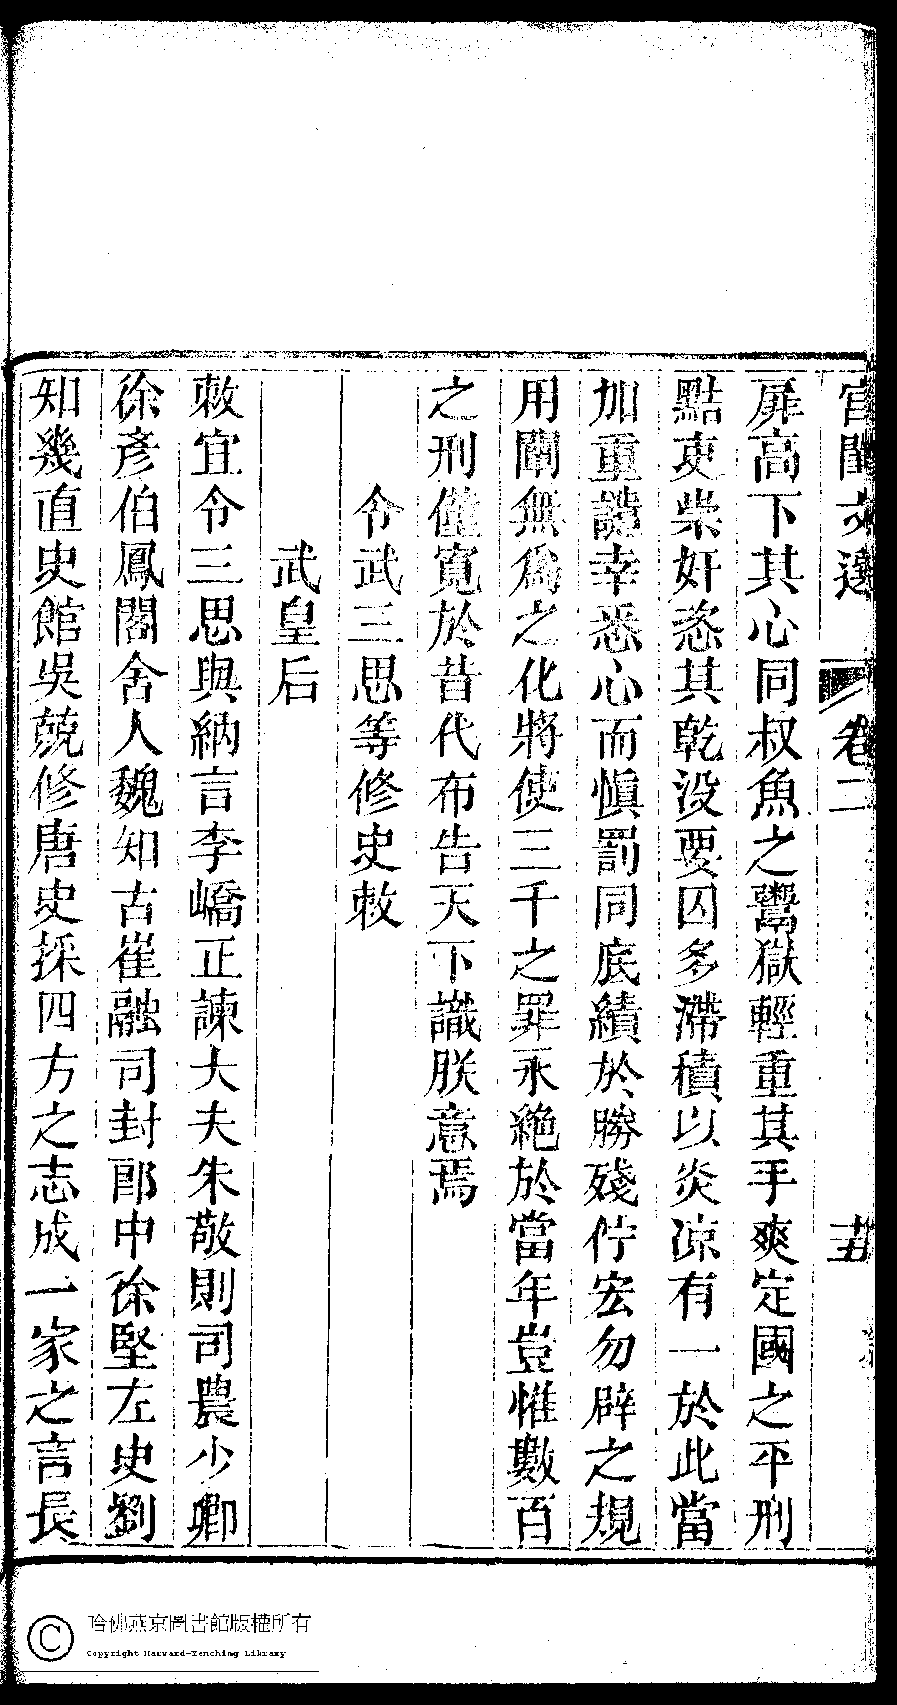 宮閨文選 卷二 十五
屏高下其心同叔魚之鬻獄輕重其手爽定國之平刑
點吏柴奸恣其乾没要囚多滯積以炎凉有一於此當
加重譴幸悉心而慎罰同底績於勝殘佇宏勿辟之規
用闡無爲之化將使三千之罪永絶於當年豈惟數百
之刑僅寛於昔代布告天下識朕意焉
令武三思等修史敕
武皇后
敕宜令三思與納言李嶠正諫大夫朱敬則司農少卿
徐彥伯鳳閣舍人魏知古崔融司封郎中徐堅左史劉
知幾直史館吳兢修唐史採四方之志成一家之言長
哈佛燕京圖書館版權所有
Copyright Harvard-Yenching Library